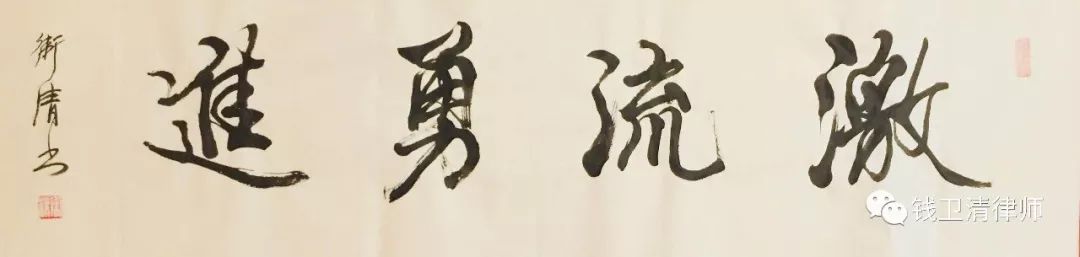 激流勇進
衛清书
钱卫清律师